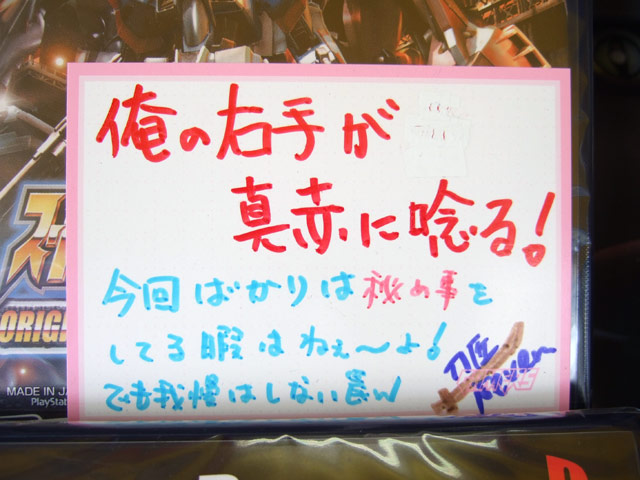 俺の右手が
真赤に唸る!
今回ばかりは秘め事を
してる暇はねぇ〜よ!
でも我慢はしない罠w
ORIG
MADE IN JA
PlaySta